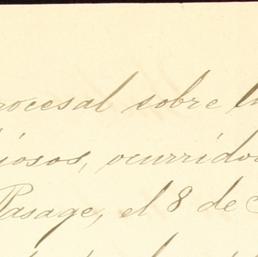 rocesal sobre l
iosos, ocurrido
Pasage, el 8 de